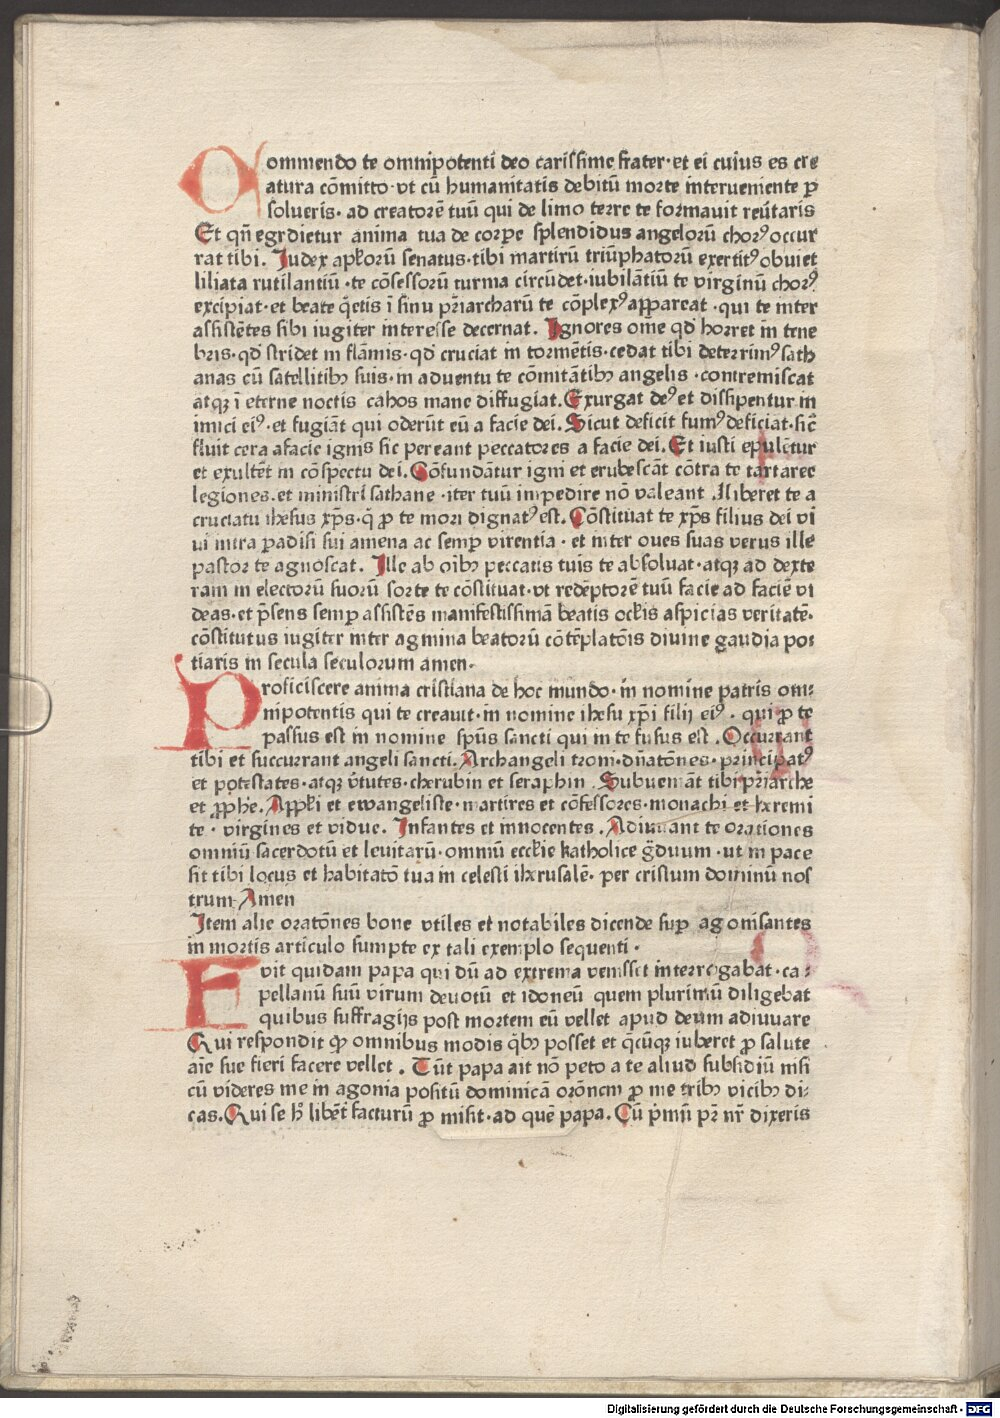 Commendo te omnipotenti deo carissime frater· et ei cuius es cre
atura cōmitto· vt cū humanitatis debitū morte interueniente ꝑ
solueris· ad creatorē tuū qui de limo terre te formauit reūtaris
Et qn̄ egrdietur anima tua de corpe splendidus angelorū chorꝰ occur
rat tibi. Iudex apl̄orū senatus· tibi martirū triūphatorū exertitꝰ obuiet
liliata rutilantiū· te cōfessorū turma circūdet· iubilantiū te virginū chorꝰ
excipiat· et beate q̄etis ī sinu pr̄iarcharū te cōplexꝰ appareat· qui te inter
assistētes sibi iugiter interesse decernat. Ignores om̄e qd̄ horret in tene
bris· qd̄ stridet in flāmis· qd̄ cruciat in tormētis· cedat tibi deterrimꝰ sath
anas cū satellitibꝫ suis· in aduentu te cōmitātibꝫ angelis· contremiscat
atqꝫ ī eterne noctis cahos mane diffugiat. Exurgat deꝰ et dissipentur in
imici eiꝰ· et fugiāt qui oderūt eū a facie dei. Sicut deficit fumꝰ deficiāt· sic̄
fluit cera afacie ignis sic pereant peccatores a facie dei. Et iusti epulētur
et exultēt in cōspectu dei. Cōfundātur igni et erubescāt cōtra te tartaree
legiones. et ministri sathane· iter tuū inpedire nō valeant. Iliberet te a
cruciatu ihesus xp̄s· q̄ ꝓ te mori dignatꝰ est. Cōstituat te xp̄s filius dei vi
ui intra ꝑadisi sui amena ac semꝑ virentia· et inter oues suas verus ille
pastor te agnoscat. Ille ab oībꝫ peccatis tuis te absoluat· atqꝫ ad dexte
ram in electorū suorū sorte te cōstituat· vt redēptorē tuū facie ad faciē vi
deas· et p̄sens semꝑ assistēs manifestissimā beatis ocl̄is aspicias veritatē·
cōstitutus iugiter inter agmina beatorū cōtēplatōis diuine gaudia po⸗
tiaris in secula seculorum amen·
Proficiscere anima cristiana de hoc mundo· in nomine patris om⸗
nipotentis qui te creauit· in nomine ihesu xp̄i filij eiꝰ· qui ꝓ te
passus est in nomine spūs sancti qui in te fusus est. Occurrant
tibi et succurrant angeli sancti. Archangeli troni· dn̄atōnes· principatꝰ
et potestates· atqꝫ v̄tutes· cherubin et seraphin. Subueniāt tibi pr̄iarche
et ꝓphe. Appl̄i et ewangeliste· martires et cōfessores· monachi et heremi
te· virgines et vidue. Infantes et innocentes. Adiuuant te orationes
omniū sacerdotū et leuitarū· omniū eccl̄ie katholice g̈duum· ut in pace
sit tibi locus et habitatō tua in celesti iherusalē· per cristum dominū nos
trum Amen
Item alie oratōnes bone vtiles et notabiles dicende suꝑ agonisantes
in mortis articulo sumpte ex tali exemplo sequenti·
Fvit quidam papa qui dū ad extrema venisset interrogabat· ca⸗
pellanū suū virum deuotū et idoneū quem plurimū diligebat
quibus suffragijs post mortem eū vellet apud deum adiuuare
Qui respondit ꝙ omnibus modis q̄bꝫ posset et q̄cūqꝫ iuberet ꝓ salute
aīe sue fieri facere vellet. Tūt papa ait nō peto a te aliud subsidiū nisi
cū videres me in agonia positū dominicā orōnem ꝓ me tribꝫ vicibꝫ di⸗
cas. Qui se h̄ libēt facturū ꝓmisit· ad quē papa. Cū p̄mū pr̄ nr̄ dixeris
Digitalisierung gefördert durch die Deutsche Forschungsgemeinschaft - DFG